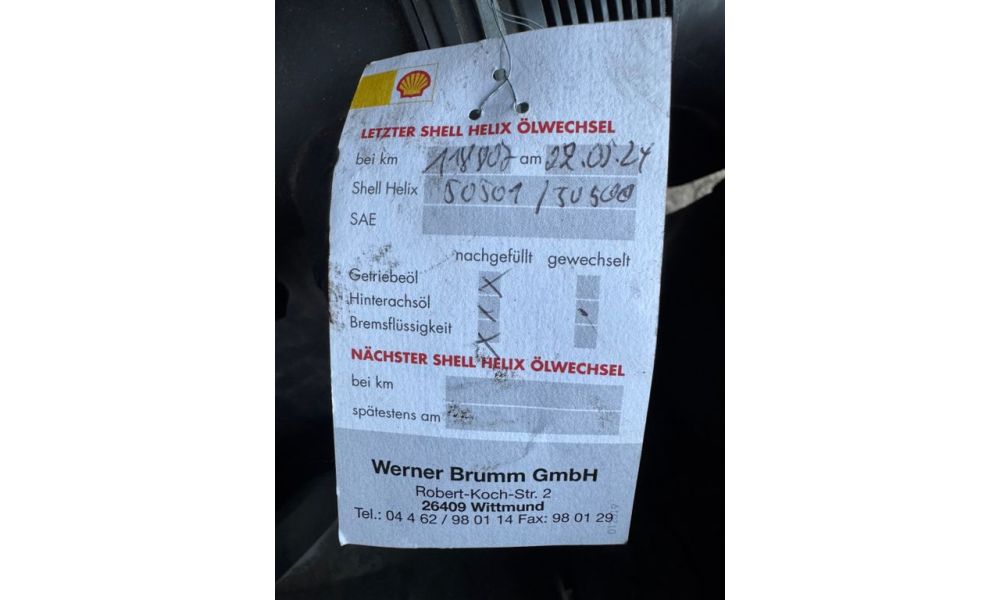 LETZTER SHELL HELIX ÖLWECHSEL
bei km am 22.05.24
Shell Helix 50501 / 50500
SAE
nachgefüllt gewechselt
Getriebeöl X
Hinterachsöl X
Bremsflüssigkeit X
NÄCHSTER SHELL HELIX ÖLWECHSEL
bei km
spätestens am
Werner Brumm GmbH
Robert-Koch-Str. 2
26409 Wittmund
Tel.: 04 4 62 / 98 01 14 Fax: 98 01 29